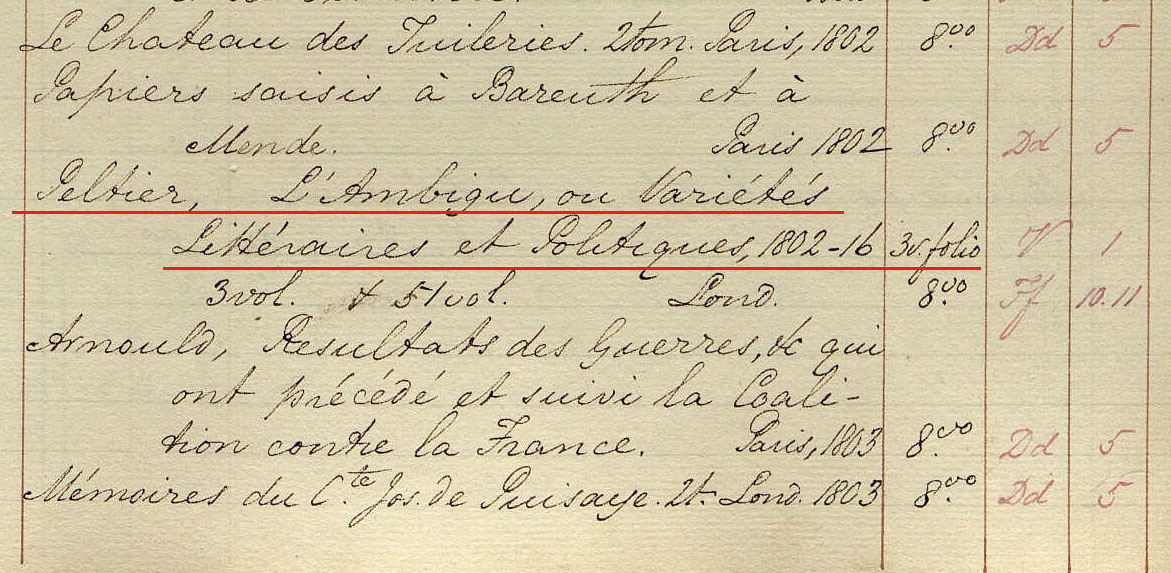 Le Chateau des Tuileries. 2tom. Paris, 1802 8.vo Dd 5
Papiers saisis à Bareuth et à
Mende. Paris 1802 8.vo Dd 5
Peltier, L'Ambigu, ou Variétés
Littéraires et Politiques, 1802-16 3v. folio V 1
3vol. & 51vol. Lond. 8.vo Ff 10.11
Arnould, Resultats des Guerres, &c qui
ont précédé et suivi la Coali-
tion contre la France. Paris, 1803 8.vo Dd 5
Mémoires du C.te Jos. de Puisaye. 2t. Lond. 1803 8.vo Dd 5